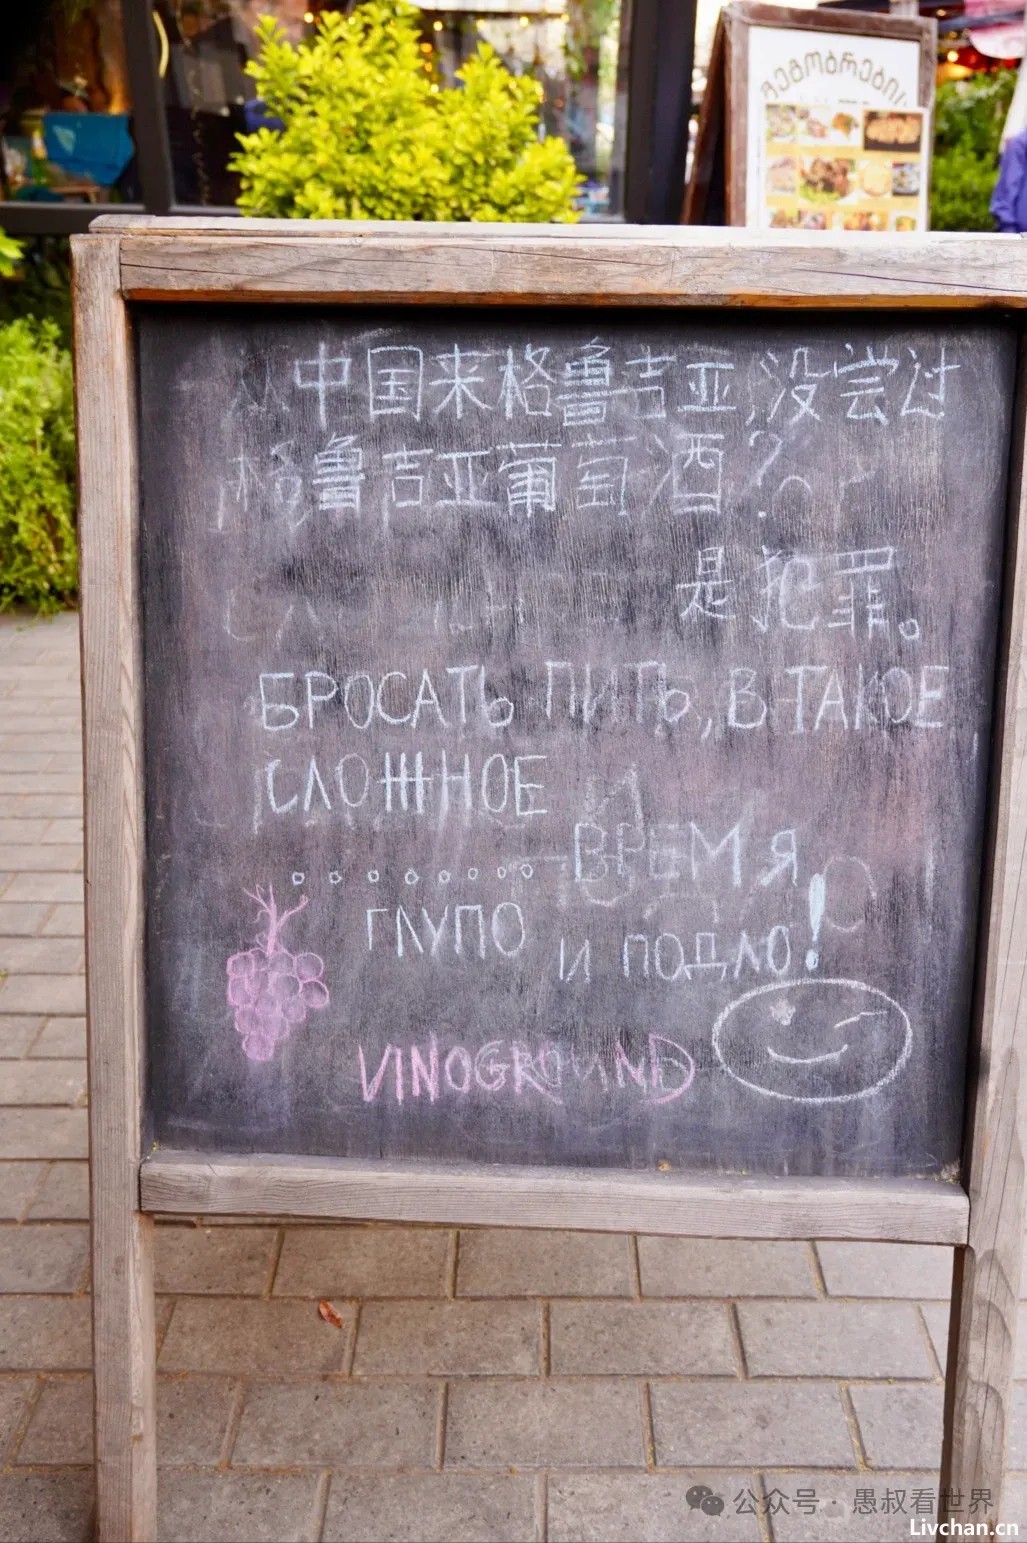 მეგობრების
从中国来格鲁吉亚,没尝过
格鲁吉亚葡萄酒?
是犯罪。
БРОСАТЬ ПИТЬ, В ТАКОЕ
СЛОЖНОЕ
ВРЕМЯ
ГЛУПО И ПОДЛО!
VINOGROUND
公众号·愚叔看世界
Livchan.cn